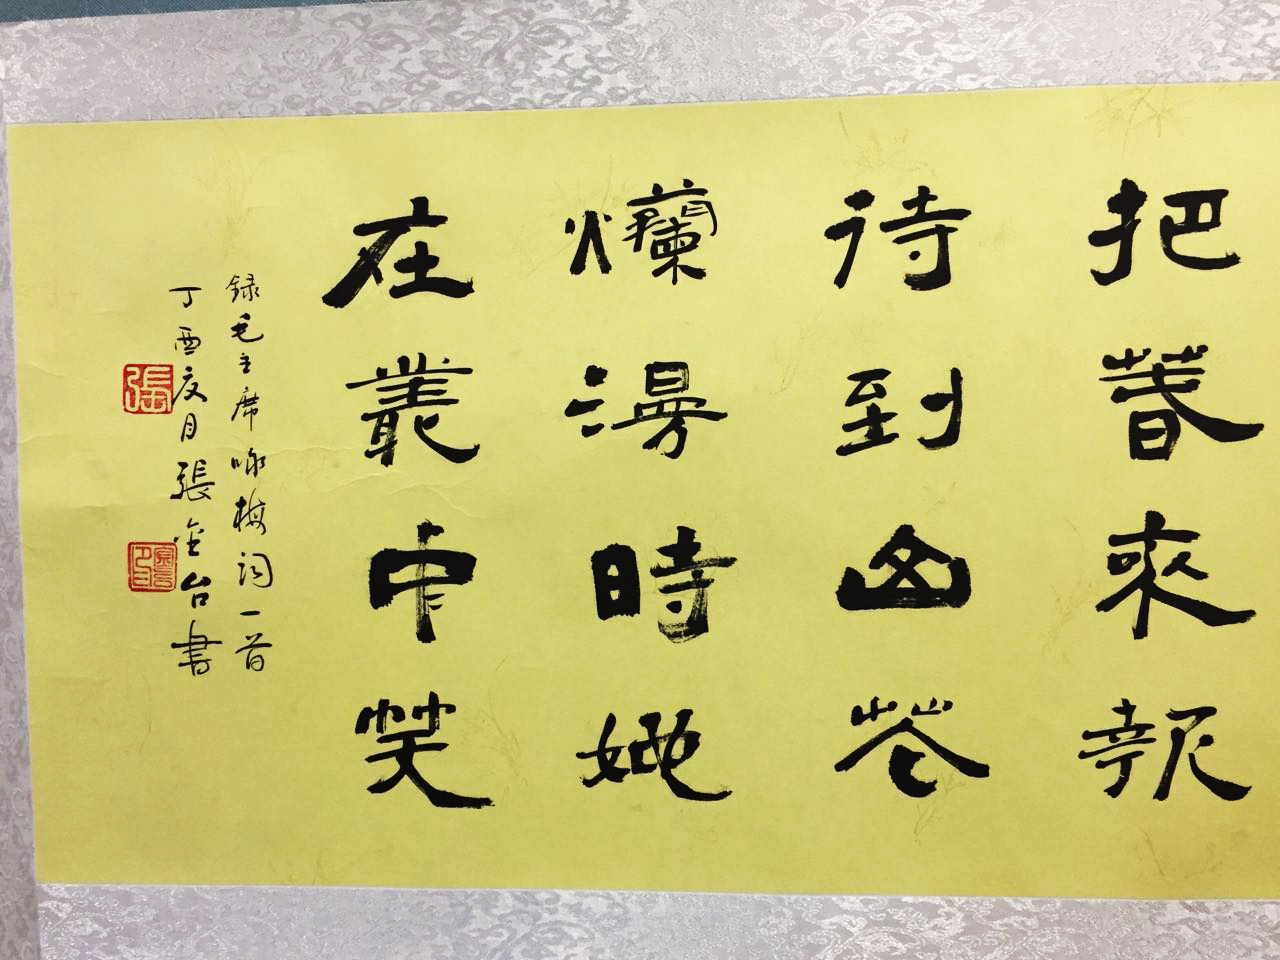 把春來報
待到山花
爛漫時她
在叢中笑
録毛主席咏梅词一首
丁酉夏月張金台書
張